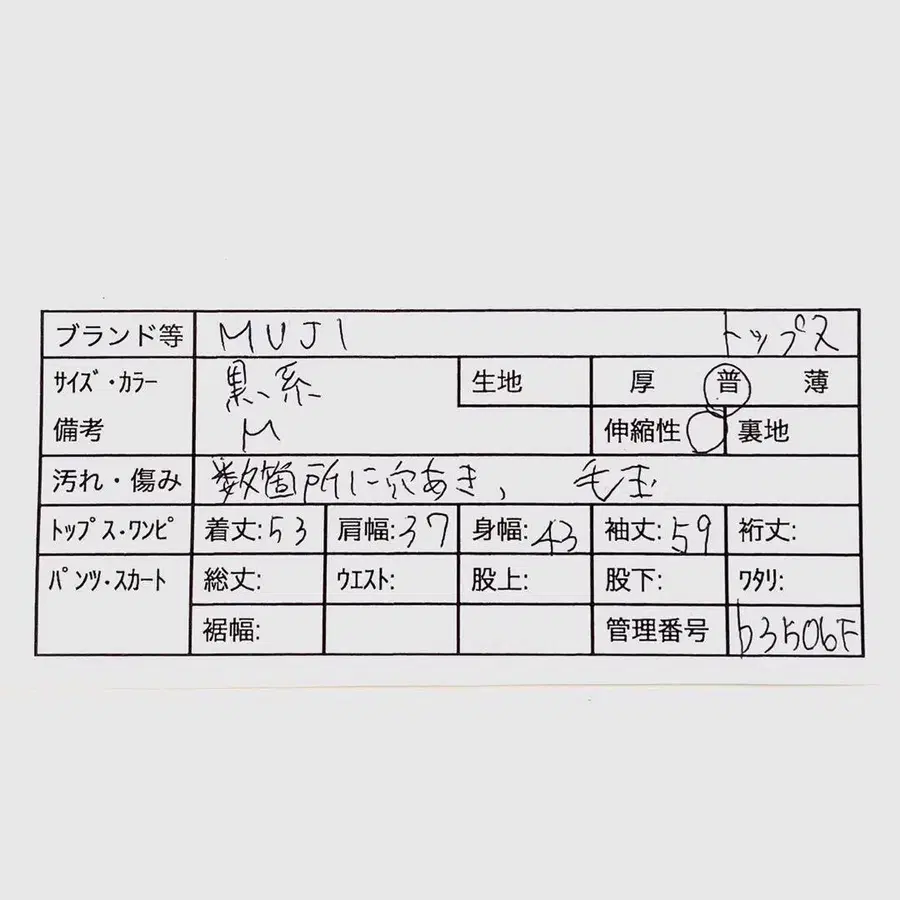 ブランド等 MUJI トップス
サイズ・カラー 黒系 生地 厚 普 薄
備考 M 伸縮性 裏地
汚れ・傷み 数箇所に穴あき、 毛玉
トップス・ワンピ 着丈:53 肩幅:37 身幅:43 袖丈:59 裄丈:
パンツ・スカート 総丈: ウエスト: 股上: 股下: ワタリ:
裾幅: 管理番号 b3506F